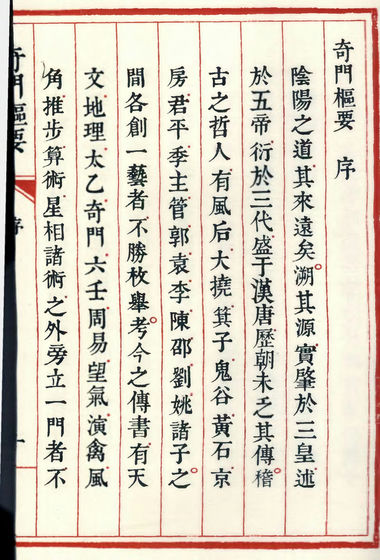 奇門樞要 序
陰陽之道其來遠矣溯其源實肇於三皇述
於五帝衍於三代盛于漢唐歷朝未乏其傳稽
古之哲人有風后大撓箕子鬼谷黃石京
房君平季主管郭袁李陳邵劉姚諸子之
間各創一藝者不勝枚舉考今之傳書有天
文地理太乙奇門六壬周易望氣演禽風
角推步算術星相諸術之外旁立一門者不
奇門樞要
序
一